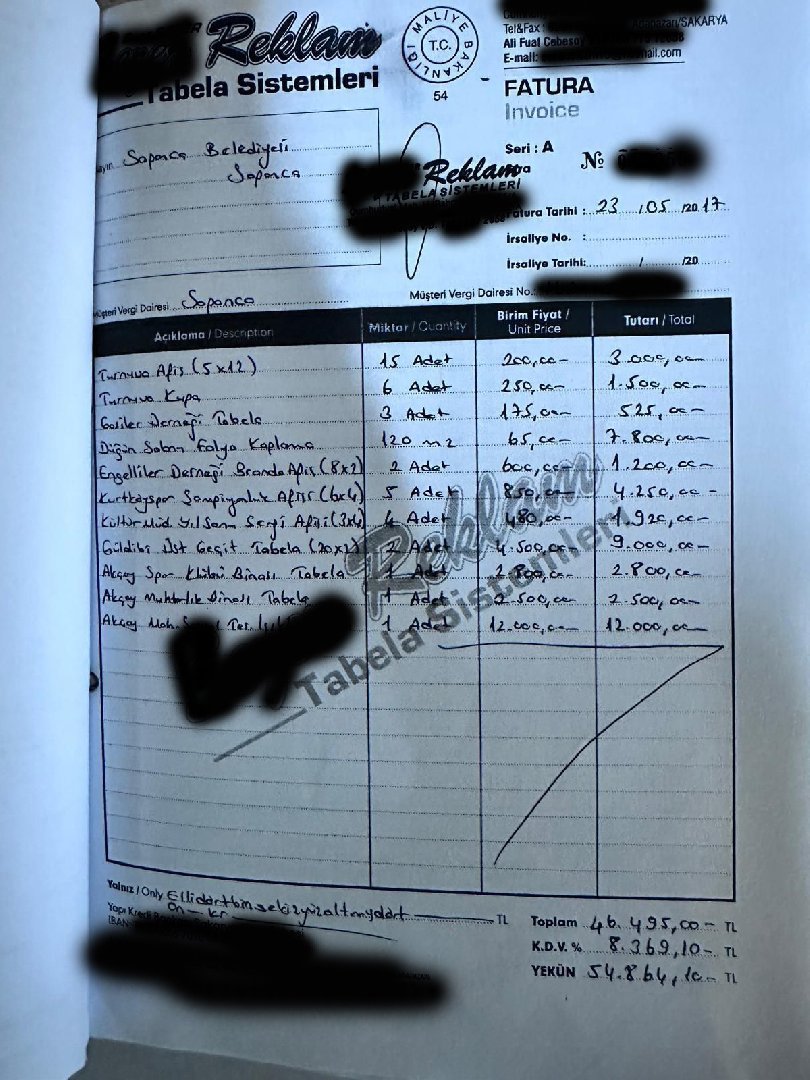 Reklam
Tabela Sistemleri
MALİYE BAKANLIĞI
T.C.
54
SAKARYA
Tel&Fax :
Ali Fuat Cebesoy
E-mail: mail.com
FATURA
Invoice
Sapanca Belediyesi
Sapanca
Reklam
TABELA SİSTEMLERİ
Seri : A
№
Fatura Tarihi : 23 /05 /2017
İrsaliye No. :
İrsaliye Tarihi: / /20
Müşteri Vergi Dairesi Sapanca
Müşteri Vergi Dairesi No.
Açıklama / Description Miktar / Quantity Birim Fiyat / Unit Price Tutarı / Total
Turnuva Afiş (5x12) 15 Adet 200,00- 3.000,00-
Turnuva Kupa 6 Adet 250,00- 1.500,00-
Galiler Derneği Tabela 3 Adet 175,00- 525,00-
Düğün Salon Folyo Kaplama 120 m2 65,00- 7.800,00-
Engelliler Derneği Branda Afiş (8x2) 2 Adet 600,00- 1.200,00-
Kurtköyspor Şampiyonluk Afişi (6x4) 5 Adet 850,00- 4.250,00-
Kültür Müd. Yıl Sonu Sergi Afişi (3x4) 4 Adet 480,00- 1.920,00-
Güldibi Üst Geçit Tabela 2 Adet 4.500,00- 9.000,00-
Akçay Spor Klübü Binası Tabela 1 Adet 2.800,00- 2.800,00-
Akçay Muhtarlık Binası Tabela 1 Adet 2.500,00- 2.500,00-
Akçay Mah. 1 Adet 12.000,00- 12.000,00-
Reklam
Tabela Sistemleri
Yalnız / Only Ellidörtbinsekizyüzaltmışdört TL
On - kr
Yapı Kredi
IBAN
Toplam 46.495,00- TL
K.D.V. % 8.369,10- TL
YEKÜN 54.864,10- TL